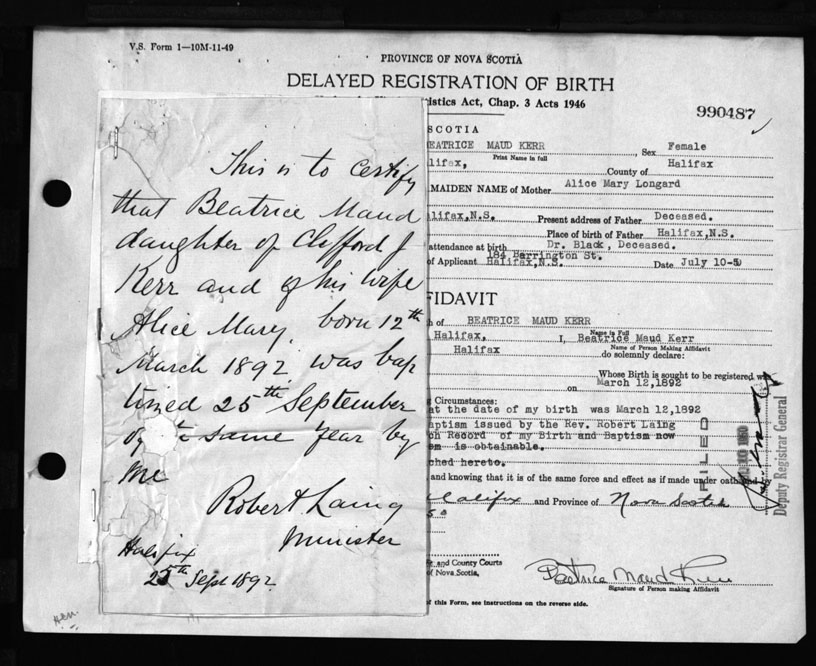 V.S. Form 1—10M-11-49
PROVINCE OF NOVA SCOTIA
DELAYED REGISTRATION OF BIRTH
istics Act, Chap. 3 Acts 1946
990487
SCOTIA
This is to certify
that Beatrice Maud
daughter of Clifford J
Kerr and of his wife
Alice Mary, born 12th
March 1892 was bap
tized 25th September
of same year by
me
Robert Laing
Minister
Halifax
25th Sept 1892
BEATRICE MAUD KERR, Sex Female
Print Name in full
lifax, County of Halifax
MAIDEN NAME of Mother Alice Mary Longard
alifax,N.S. Present address of Father Deceased.
Place of birth of Father Halifax,N.S.
attendance at birth Dr. Black, Deceased.
184 Barrington St.
of Applicant Halifax,N.S. Date July 10-50
FIDAVIT
th of BEATRICE MAUD KERR
Name in Full
Halifax, I, Beatrice Maud Kerr
Name of Person Making Affidavit
Halifax do solemnly declare:
Whose Birth is sought to be registered w
on March 12,1892
g Circumstances:
at the date of my birth was March 12,1892
aptism issued by the Rev. Robert Laing
ch Record of my Birth and Baptism now
em is obtainable.
ched hereto.
and knowing that it is of the same force and effect as if made under oath and by
Halifax and Province of Nova Scotia
FILED
Deputy Registrar General
e and County Courts
of Nova Scotia.
Beatrice Maud Kerr
Signature of Person making Affidavit
of this Form, see instructions on the reverse side.